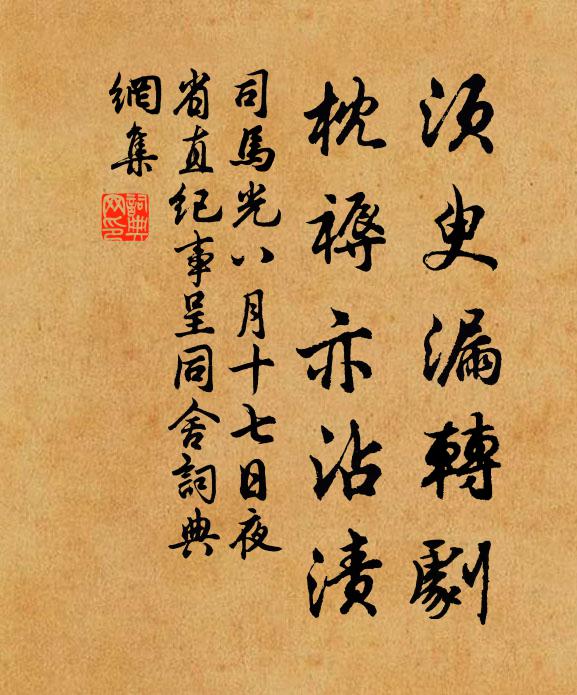 須臾漏轉劇
枕褥亦沾漬
司馬光八月十七日夜
省直紀事呈同舍詞典
網集
詞典
网印